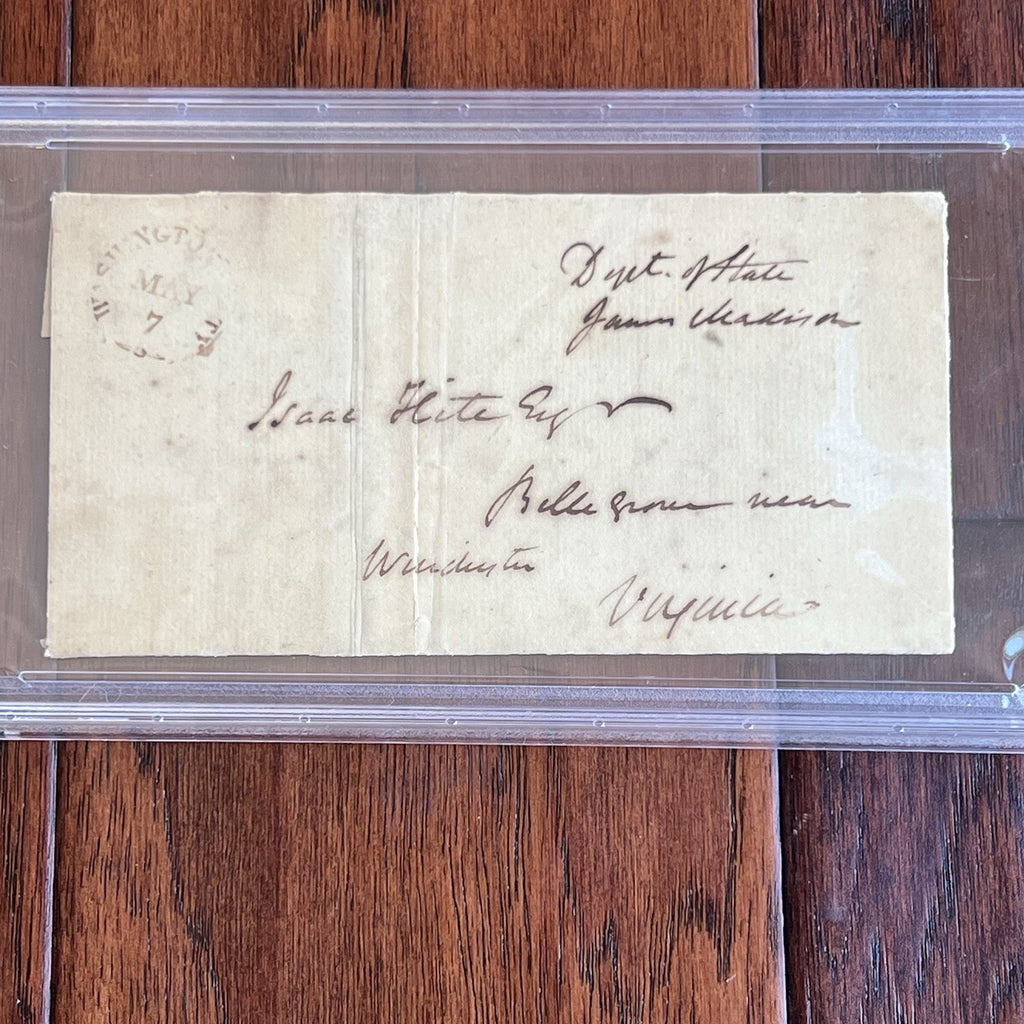 WASHINGTON CITY
MAY
7
Dept. of State
James Madison
Isaac Hite Esqr
Bellegrove near
Winchester
Virginia